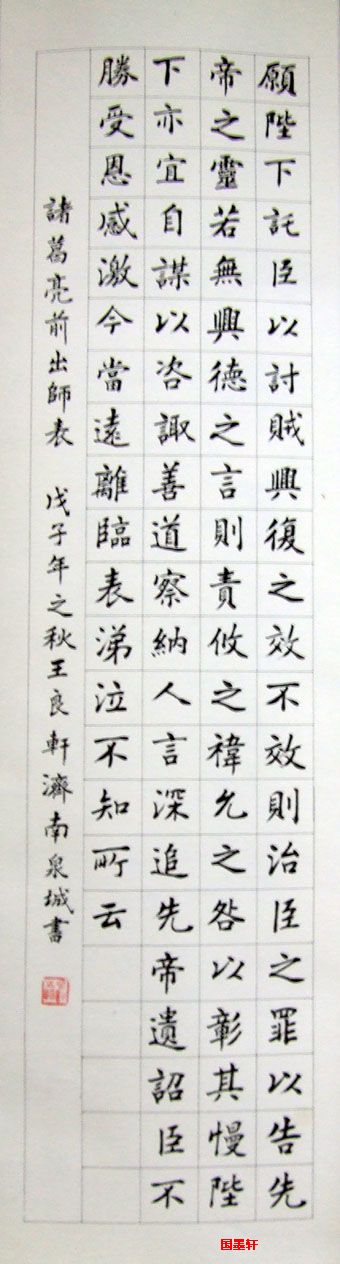 願陛下託臣以討賊興復之效不效則治臣之罪以告先
帝之靈若無興德之言則責攸之禕允之咎以彰其慢陛
下亦宜自謀以咨諏善道察納人言深追先帝遺詔臣不
勝受恩感激今當遠離臨表涕泣不知所云
諸葛亮前出師表 戊子年之秋王良軒濟南泉城書
国墨轩